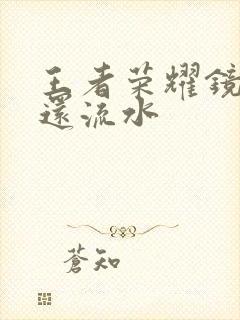 王者荣耀鏡
還流水
蒼知